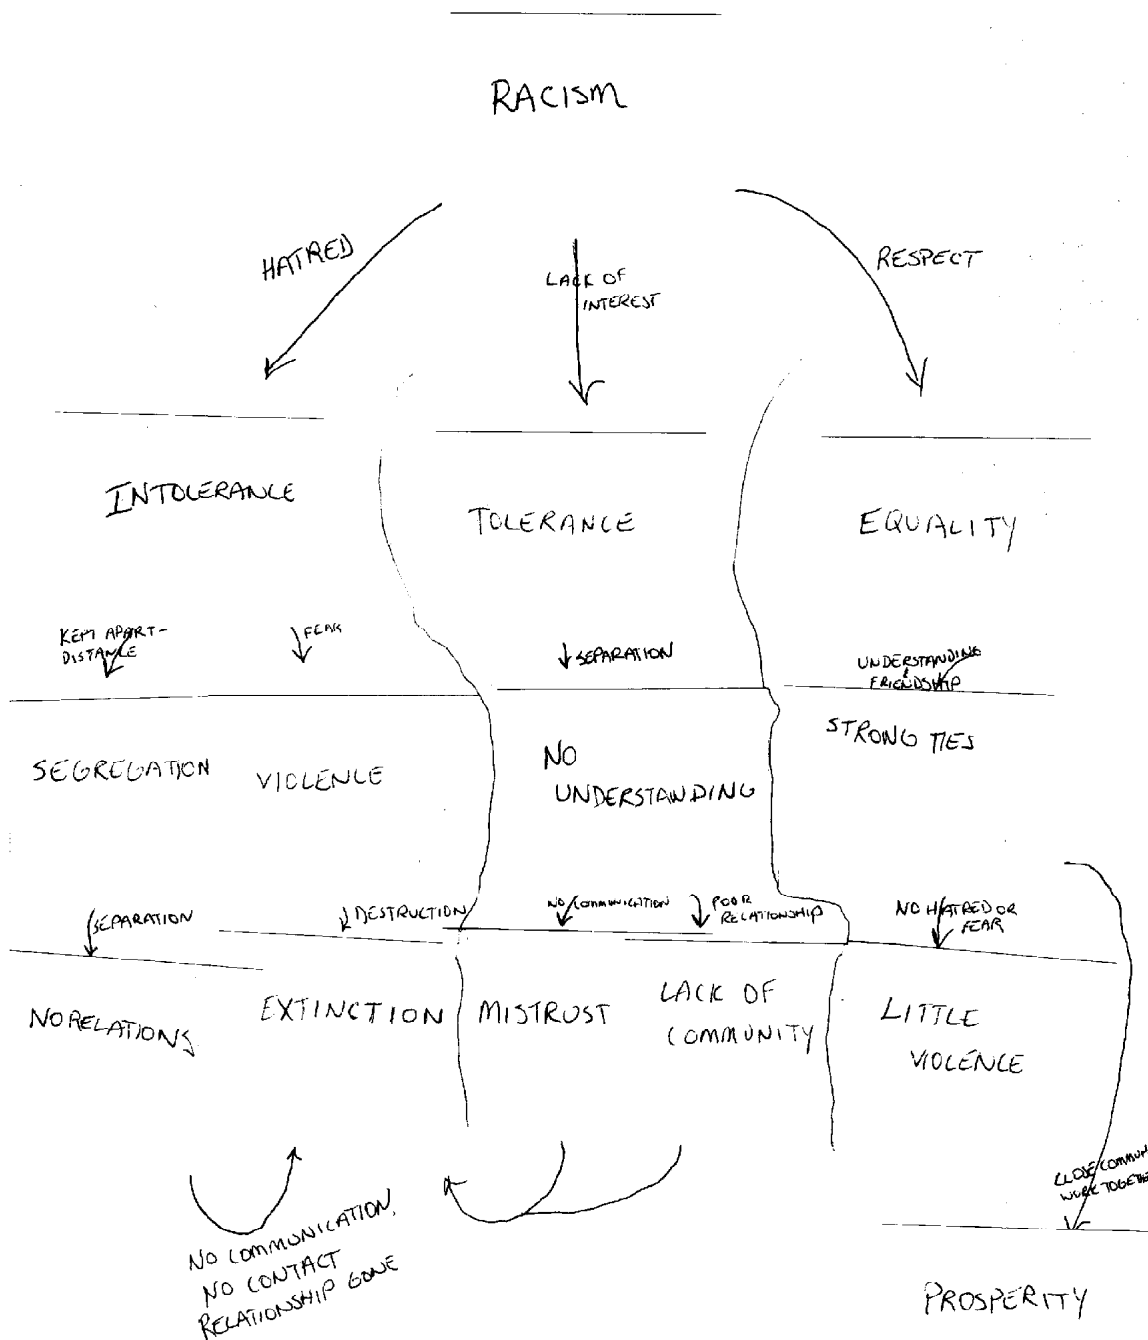 RACISM
HATRED
LACK OF
INTEREST
RESPECT
INTOLERANCE
TOLERANCE
EQUALITY
KEPT APART-
DISTANCE
FEAR
SEPARATION
UNDERSTANDING
FRIENDSHIP
SEGREGATION
VIOLENCE
NO
UNDERSTANDING
STRONG TIES
SEPARATION
DESTRUCTION
NO COMMUNICATION
POOR
RELATIONSHIP
NO HATRED OR
FEAR
NO RELATIONS
EXTINCTION
MISTRUST
LACK OF
COMMUNITY
LITTLE
VIOLENCE
NO COMMUNICATION,
NO CONTACT
RELATIONSHIP GONE
CLOSE COMMUN
WORK TOGETHE
PROSPERITY